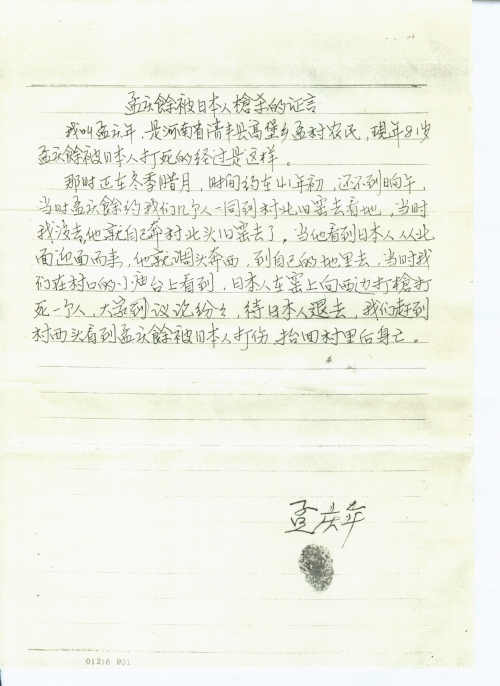 孟庆餘被日本人槍杀的证言
我叫孟庆年,是河南省清丰县高堡乡孟村农民,现年81岁
孟庆餘被日本人打死的经过是这样。
那时正在冬季腊月,时间约在41年初,还不到晌午,
当时孟庆餘约我们几个人一同到村北旧窑去看地,当时
我没去,他就自己奔村北头旧窑去了。当他看到日本人从北
面迎面而来,他就调头奔西,到自己的地里去,当时我
们在村口的小庙台上看到,日本人在窑上向西边打槍打
死一个人,大家到议论纷々,待日本人退去,我们赶到
村西头看到孟庆餘被日本人打伤,抬回村里后身亡。
孟庆年
01216 001